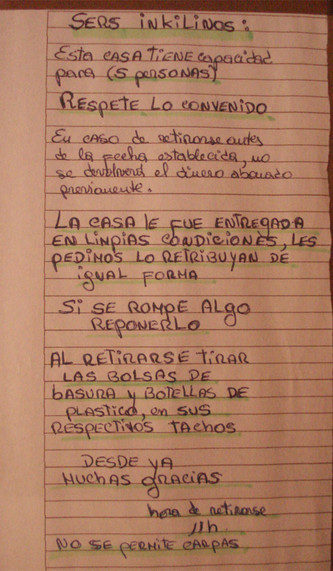 SERS INKILINOS:
Esta CASA TIENE capacidad
para (5 personas)
RESPETE LO CONVENIDO
En caso de retirarse antes
de la fecha establecida, no
se devolverá el dinero abonado
previamente.
LA CASA LE FUE ENTREGADA
EN LINPIAS CONDICIONES, LES
PEDIMOS LO RETRIBUYAN DE
IGUAL FORMA
SI SE ROMPE ALGO
REPONERLO
AL RETIRARSE TIRAR
LAS BOLSAS DE
BASURA Y BOTELLAS DE
PLASTICO, en SUS
RESPECTIVOS TACHOS
DESDE YA
MUCHAS GRACIAS
hora de retirarse
11h
NO SE PERMITE CARPAS